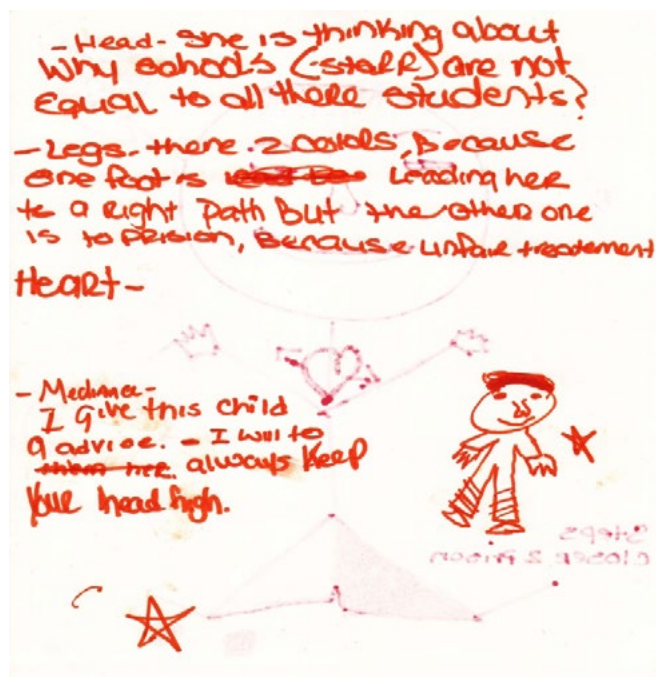 - Head - She is thinking about
Why schools (staff) are not
Equal to all there students?
- Legs. there . 2 colors, Because
one foot is leading her
to a Right Path But the other one
is to prision, Because unfair treadement
Heart -
- Medinna -
I give this child
a advice. - I will to
always keep
your head high.
Steps
closer 2 prison